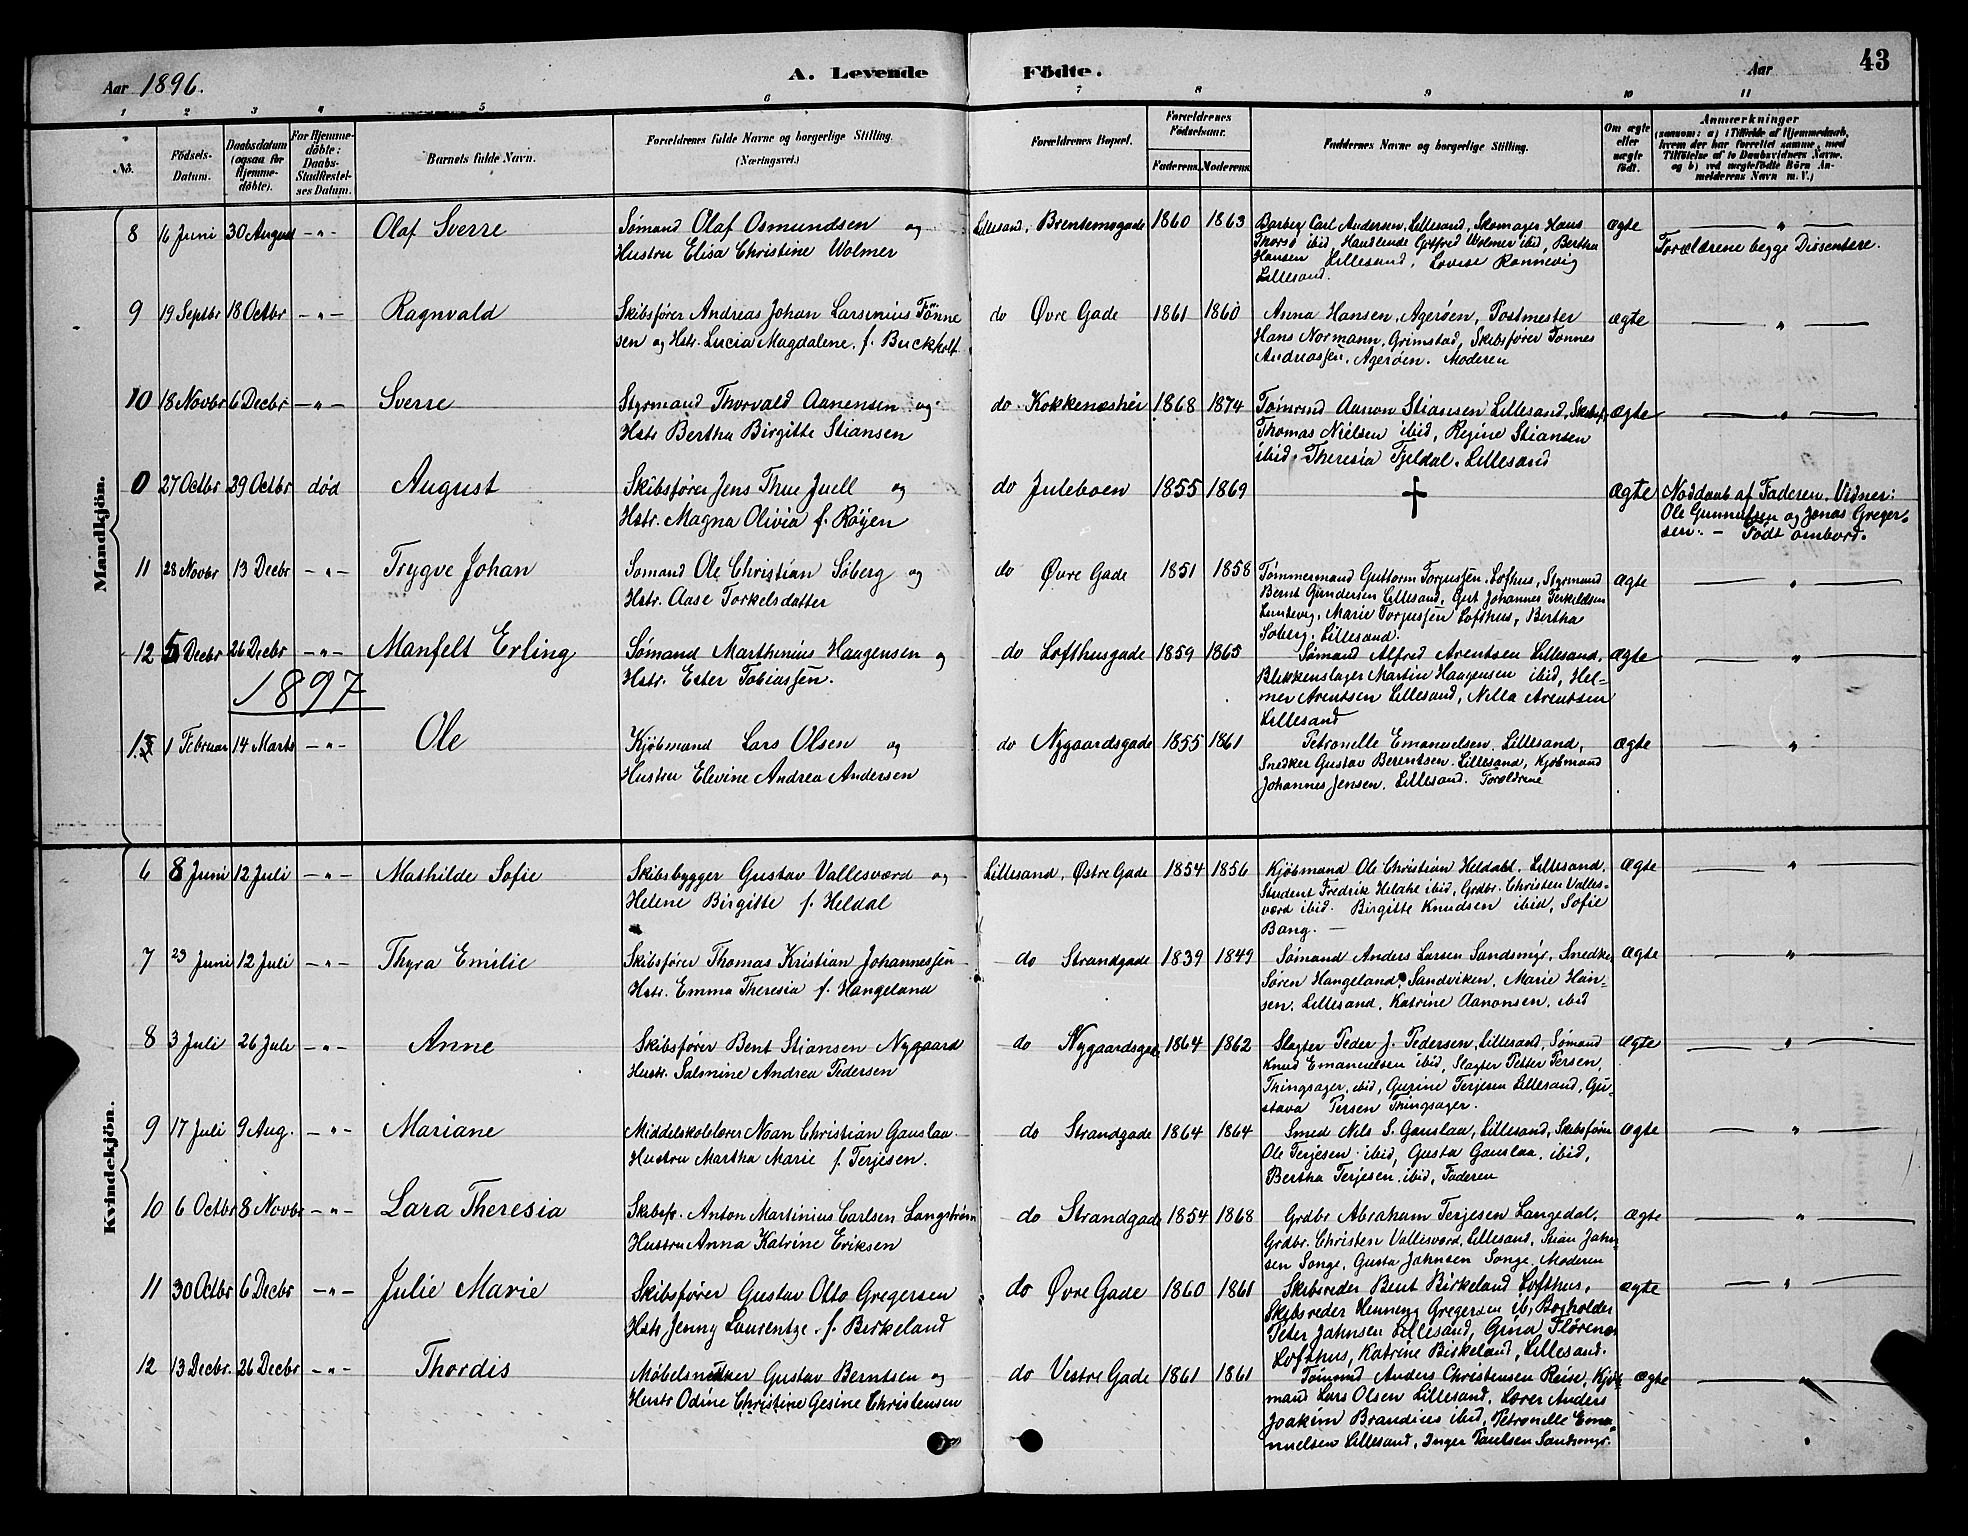 Aar 1896.
A. Levende Födte.
Aar
43
1 2 3 4 5 6 7 8 9 10 11
No.
Födsels-Datum.
Daabsdatum (ogsaa for Hjemme-döbte).
For Hjemme-döbte: Daabs-Stadfestel-ses Datum.
Barnets fulde Navn.
Forældrenes fulde Navne og borgerlige Stilling. (Næringsvei.)
Forældrenes Bopæl.
Forældrenes Födselsaar. Faderens. Moderens.
Faddernes Navne og borgerlige Stilling.
Om ægte eller uægte födt.
Anmærkninger (saasom: a) i Tilfælde af Hjemmedaab, hvem der har forrettet samme, med Tilföielse af to Daabsvidners Navne. og b) ved uægtefödte Börn An-melderens Navn m. V.)
Mandkjön.
8 16 Juni 30 August —"— Olaf Sverre
Sømand Olaf Osmundsen og
Hustru Elisa Christine Wolmer
Lillesand, Brentemogade 1860 1863
Barber Carl Andersen, Lillesand, Skomager Hans
Thorsø ibid, Handlende Gotfred Wolmer ibid, Bertha
Hansen Lillesand, Lovise Rønnevig
Lillesand.
ægte — " —
Forældrene begge Dissentere.
9 19 Septbr 18 Octbr —"— Ragnvald
Skibsfører Andreas Johan Larsinius Tønne
sen og Hstr. Lucia Magdalene, f. Buckholt
do Øvre Gade 1861 1860
Anna Hansen, Agerøen, Postmester
Hans Normann, Grimstad, Skibsfører Tønnes
Andreassen, Agerøen. Moderen
ægte — " —
10 18 Novbr 6 Decbr —"— Sverre
Styrmand Thorvald Aanensen og
Hstr Bertha Birgitte Stiansen
do Kokkenæshei 1868 1874
Tømrmd Aanon Stiansen Lillesand, Skibsf.
Thomas Nielsen ibid, Regine Stiansen
ibid. Theresia Fjeldal. Lillesand
ægte — " —
0 27 Octbr 29 Octbr død August
Skibsfører Jens Thue Juell og
Hstr. Magna Olivia f. Røyen
do Juleboen 1855 1869
†
ægte Nøddaab af Faderen. Vidner:
Ole Gunnufsen og Jonas Greger-
sen. — Født ombord.
11 28 Novbr 13 Decbr —"— Trygve Johan
Sømand Ole Christian Søberg og
Hstr. Aase Torkelsdatter
do Øvre Gade 1851 1858
Tømmermand Guttorm Torjussen, Lofthus, Styrmand
Bernt Gundersen Lillesand, Gert Johannes Terkildsen
Luntevig, Marie Torjussen Lofthus, Bertha
Søberg, Lillesand.
ægte — " —
12 5 Decbr 26 Decbr —"— Manfelt Erling
Sømand Marthinius Haagensen og
Hstr. Ester Tobiassen.
do Lofthusgade 1859 1865
Sømand Alfred Arentsen Lillesand,
Blikkenslager Martin Haagensen ibid, Hel-
mer Arentsen Lillesand, Nilla Arentsen
Lillesand
ægte — " —
1897
1. 1 Februar 14 Marts —"— Ole
Kjøbmand Lars Olsen og
Hustru Elevine Andrea Andersen
do Nygaardsgade 1855 1861
Petronelle Emanuelsen, Lillesand,
Snedker Gustav Berentsen. Lillesand, Kjøbmand
Johannes Jensen. Lillesand. Forældrene
ægte — "
Kvindekjön.
6 8 Juni 12 Juli —"— Mathilde Sofie
Skibsbygger Gustav Vallesværd og
Helene Birgitte f. Heldal
Lillesand, Østre Gade 1854 1856
Kjøbmand Ole Christian Heldahl. Lillesand.
Student Fredrik ibid, Grdbr. Christen Valles-
værd ibid. Birgitte Knudsen ibid, Sofie
Bang. —
ægte — " —
7 23 Juni 12 Juli —"— Thyra Emilie
Skibsfører Thomas Kristian Johannessen
Hstr. Emma Theresia f. Hangeland
do Strandgade 1839 1849
Sømand Anders Larsen Sandsmyr, Snedker
Søren Hangeland, Sandviken, Marie Han-
sen, Lillesand, Katrine Aanonsen, ibid
ægte — " —
8 3 Juli 26 Juli —"— Anne
Skibsfører Bent Stiansen Nygaard
Hustr. Salmine Andrea Pedersen
do Nygaardsgade 1864 1862
Slagter Peder J. Pedersen, Lillesand, Sømand
Knud Emanuelsen ibid, Slagter Petter Persen,
Thingsager, ibid, Gurine Terjesen Lillesand, Gu-
stava Persen Thingsager.
ægte — " —
9 17 Juli 9 Aug. —"— Mariane
Middelskolelærer Noan Christian Gauslaa.
Hustru Martha Marie f. Terjesen.
do Strandgade 1864 1864
Smed Nils S. Gauslaa, Lillesand, Skibsfører
Ole Terjesen ibid, Gusta Gauslaa, ibid,
Bertha Terjesen, ibid, Faderen
ægte — " —
10 6 Octbr 8 Novbr —"— Lara Theresia
Skibsf. Anton Martinius Carlsen Langstrøm
Hustru Anna Katrine Eriksen
do Strandgade 1854 1868
Grdbr Abraham Terjesen Langedal,
Grdbr. Christen Vallesværd, Lillesand, Stian Jahn-
sen Songe, Gusta Jahnsen Songe, Moderen
ægte — " —
11 30 Octbr 6 Decbr —"— Julie Marie
Skibsfører Gustav Otto Gregersen
Hstr Jenny Laurentze. f. Birkeland
do Øvre Gade 1860 1861
Skibsreder Bent Birkeland Lofthus,
Skibsreder Henning Gregersen ib, Bogholder
Peter Jahnsen Lillesand, Gina
Lofthus, Katrine Birkeland, Lillesand.
ægte — " —
12 13 Decbr. 26 Decbr —"— Thordis
Møbelsnedker Gustav Berntsen og
Hustr Odine Christine Gesine Christensen
do Vestre Gade 1861 1861
Tømmd Anders Christensen Reise, Kjøb-
mand Lars Olsen Lillesand, Lærer Anders
Joakim Brandsies ibid, Petronelle Ema-
nuelsen Lillesand, Inger Paulsen Sandsmyr.
ægte — " —